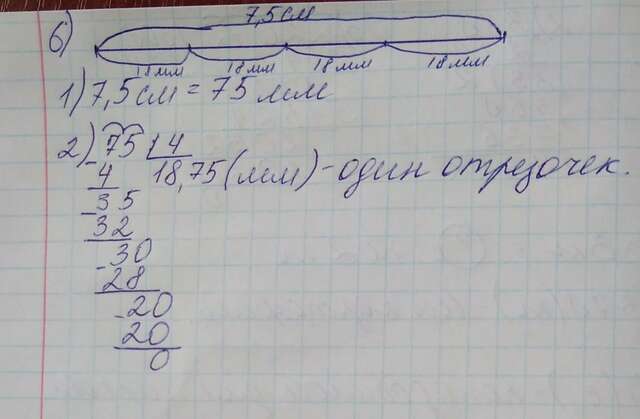 б) 7,5 см
18 мм 18 мм 18 мм 18 мм
1) 7,5 см = 75 мм
2) 75 | 4
- 4 18,75 (мм) - один отрезочек.
- 35
32
- 30
28
- 20
20
0